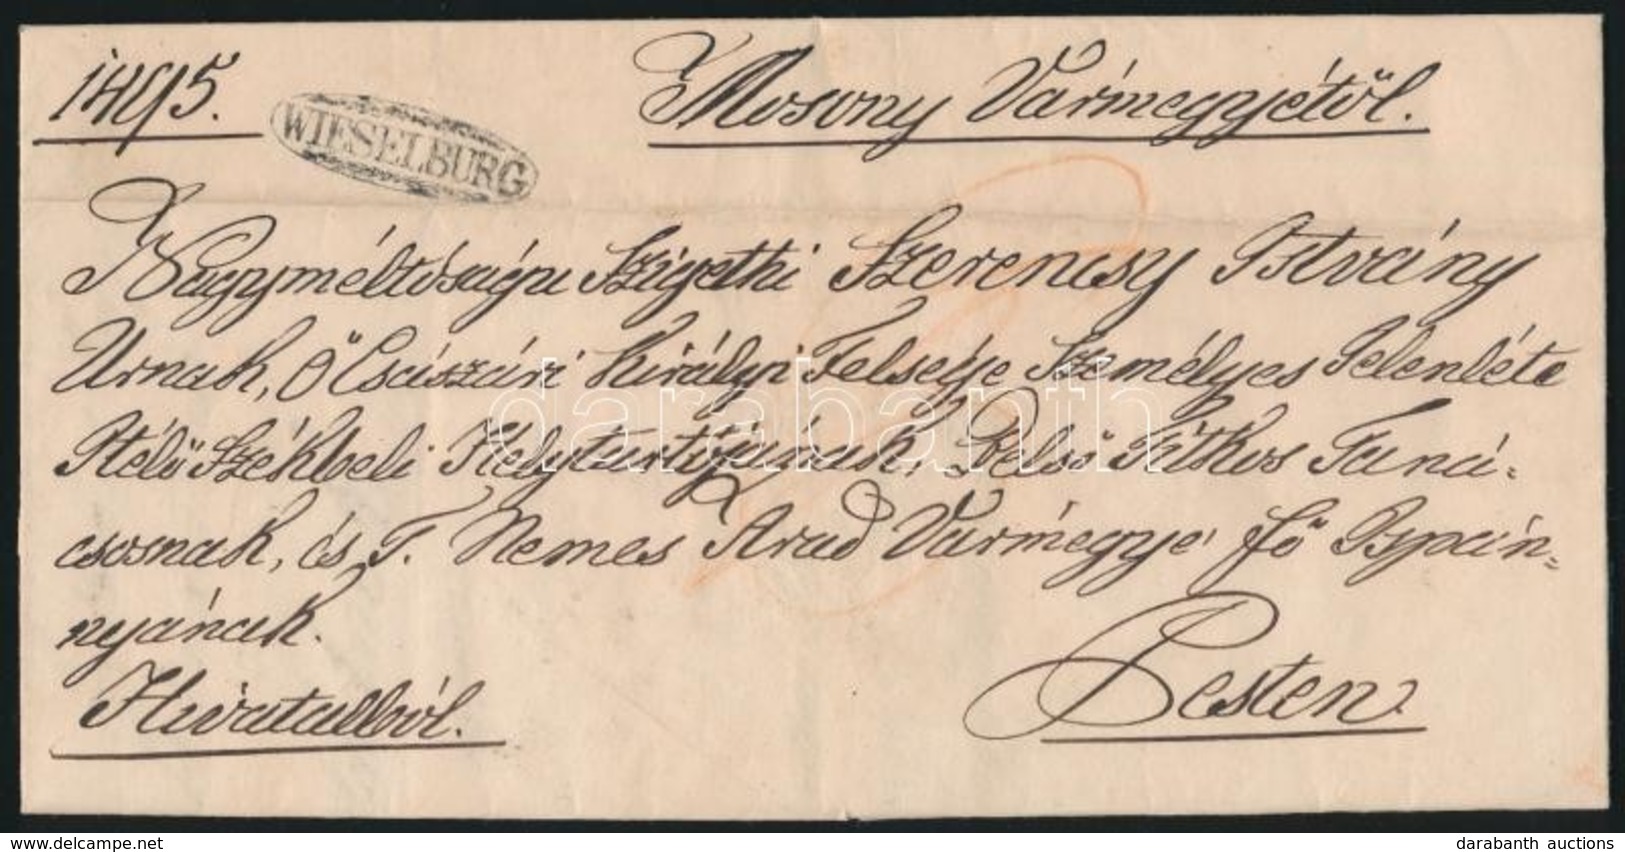 1495.
WIESELBURG
Mosony Vármegyétől.
Nagyméltóságu Szigethi Szerencsy István
Urnak, Ő Császári Királyi Felsége Személyes Jelenléte
Itélő Székbeli Helytartójának, Belső Titkos Taná=
csosnak, és T. Nemes Arad Vármegye fő Ispán=
nyának.
Hivatalból.
Pesten
darabanth
darabanth auctions